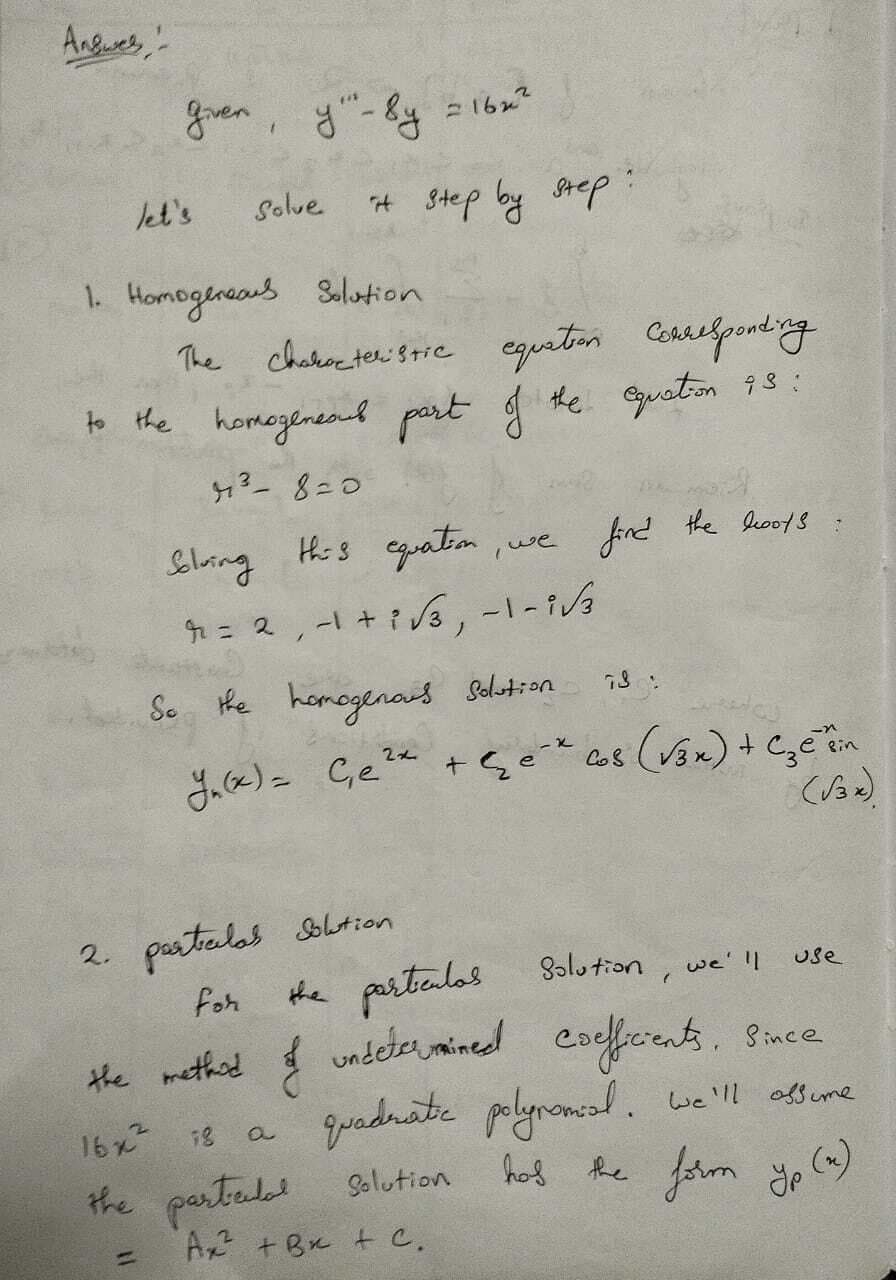 Answer :-
given , y''' - 8y = 16x²
let's solve it step by step :
1. Homogeneous Solution
The characteristic equation corresponding
to the homogeneous part of the equation is :
r³ - 8 = 0
Solving this equation , we find the roots :
r = 2 , -1 + i√3 , -1 - i√3
So the homogenous solution is :
yₕ(x) = C₁e²ˣ + C₂ e⁻ˣ cos (√3x) + C₃e⁻ˣ sin
(√3x).
2. particular solution
for the particular solution , we'll use
the method of undetermined coefficients. Since
16x² is a quadratic polynomial. we'll assume
the particular solution has the form yₚ(x)
= Ax² + Bx + C.